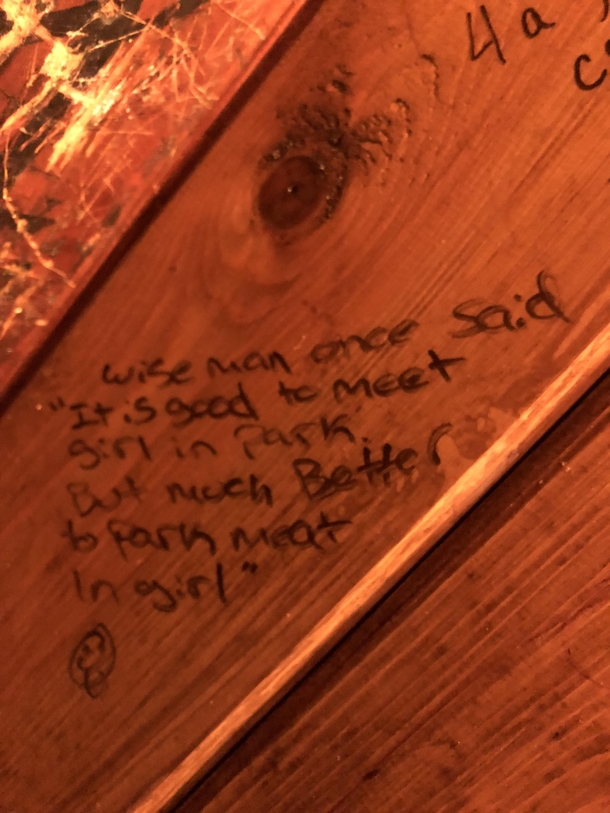 4a
wise man once said
"It is good to meet
girl in Park.
But much Better
to Park meat
In girl"